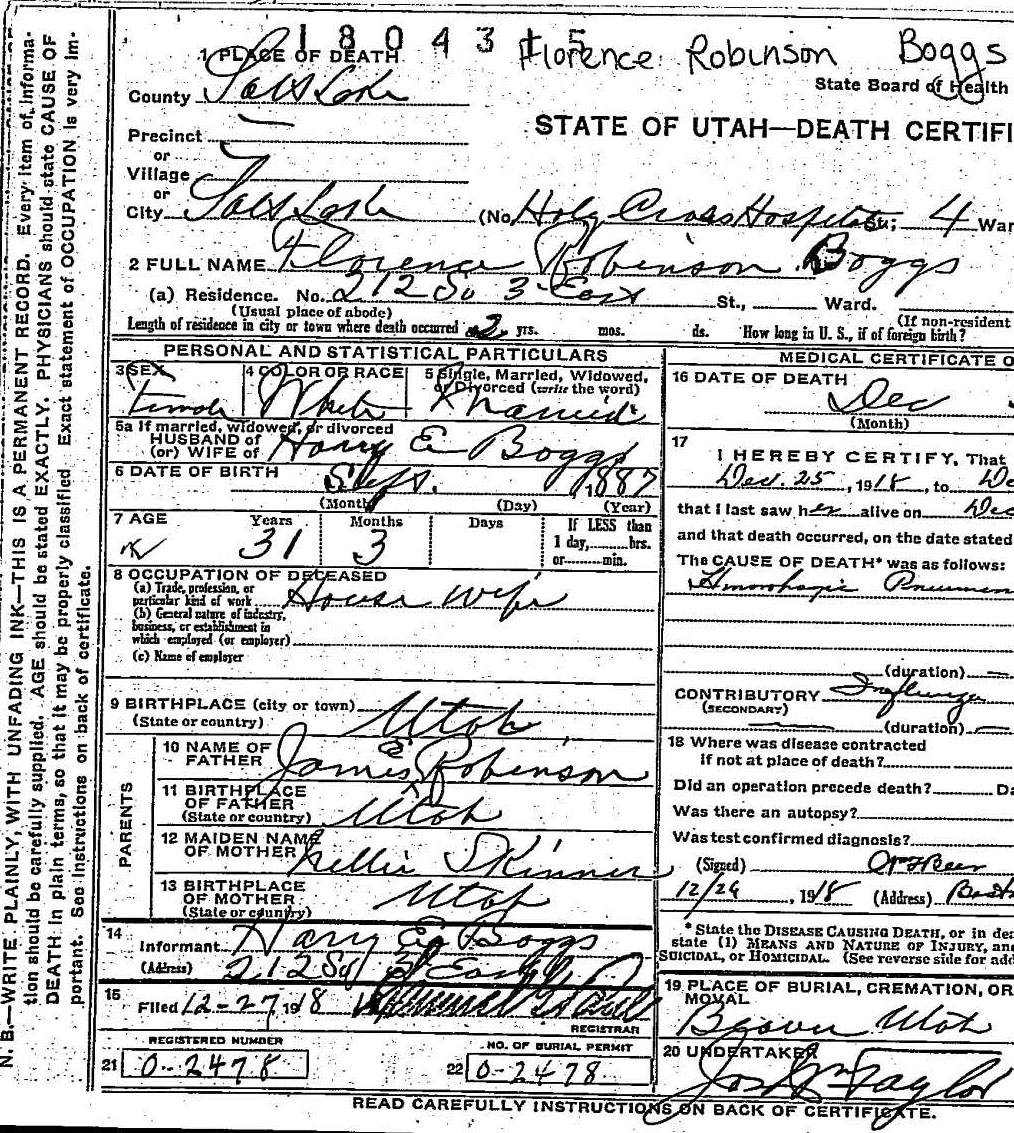 1 8 0 4 3 1 5
Florence Robinson Boggs
State Board of Health
STATE OF UTAH—DEATH CERTIFI
1 PLACE OF DEATH
County Salt Lake
Precinct
or
Village
or
City Salt Lake (No. Holy Cross Hospital St; 4 War
2 FULL NAME Florence Robinson Boggs
(a) Residence. No. 212 So 3 East St., Ward.
(Usual place of abode) (If non-resident
Length of residence in city or town where death occurred 2 yrs. mos. ds. How long in U. S., if of foreign birth?
PERSONAL AND STATISTICAL PARTICULARS
3 SEX 4 COLOR OR RACE 5 Single, Married, Widowed, or Divorced (write the word)
Female White Married
5a If married, widowed, or divorced
HUSBAND of
(or) WIFE of Harry E Boggs
6 DATE OF BIRTH Sept. 1887
(Month) (Day) (Year)
7 AGE Years Months Days If LESS than
31 3 1 day, hrs.
or min.
8 OCCUPATION OF DECEASED
(a) Trade, profession, or
particular kind of work House wife
(b) General nature of industry,
business, or establishment in
which employed (or employer)
(c) Name of employer
9 BIRTHPLACE (city or town)
(State or country) Utah
PARENTS
10 NAME OF
FATHER James Robinson
11 BIRTHPLACE
OF FATHER
(State or country) Utah
12 MAIDEN NAME
OF MOTHER Nellie Skinner
13 BIRTHPLACE
OF MOTHER
(State or country) Utah
14
Informant Harry E Boggs
(Address) 212 So 3 East
15
Filed 12-27 1918
REGISTRAR
REGISTERED NUMBER NO. OF BURIAL PERMIT
21 0-2478 22 0-2478
MEDICAL CERTIFICATE O
16 DATE OF DEATH
Dec
(Month)
17
I HEREBY CERTIFY, That
Dec. 25, 1918, to De
that I last saw her alive on Dec
and that death occurred, on the date stated
The CAUSE OF DEATH* was as follows:
Hmorhagic Pneumon
(duration)
CONTRIBUTORY Influenza
(SECONDARY)
(duration)
18 Where was disease contracted
if not at place of death?
Did an operation precede death? Da
Was there an autopsy?
Was test confirmed diagnosis?
(Signed)
12/26, 1918 (Address)
* State the DISEASE CAUSING DEATH, or in dea
state (1) MEANS AND NATURE OF INJURY, and
SUICIDAL, OR HOMICIDAL. (See reverse side for add
19 PLACE OF BURIAL, CREMATION, OR
MOVAL
Beaver Utah
20 UNDERTAKER
Jos Wm Taylor
READ CAREFULLY INSTRUCTIONS ON BACK OF CERTIFICATE.
N. B.—WRITE PLAINLY, WITH UNFADING INK—THIS IS A PERMANENT RECORD. Every item of informa-
tion should be carefully supplied. AGE should be stated EXACTLY. PHYSICIANS should state CAUSE OF
DEATH in plain terms, so that it may be properly classified. Exact statement of OCCUPATION is very im-
portant. See instructions on back of certificate.